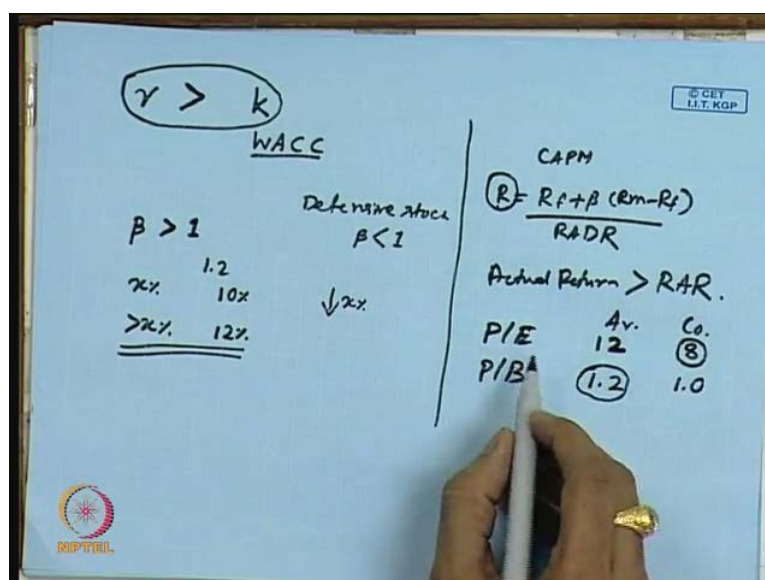 r > k
WACC
β > 1
1.2
x% 10%
>x% 12%
Defensive stock
β < 1
↓x%
© CET
I.I.T. KGP
CAPM
R = Rf + β (Rm - Rf)
RADR
Actual Return > RAR.
Av. Co.
P/E 12 8
P/B 1.2 1.0
NPTEL